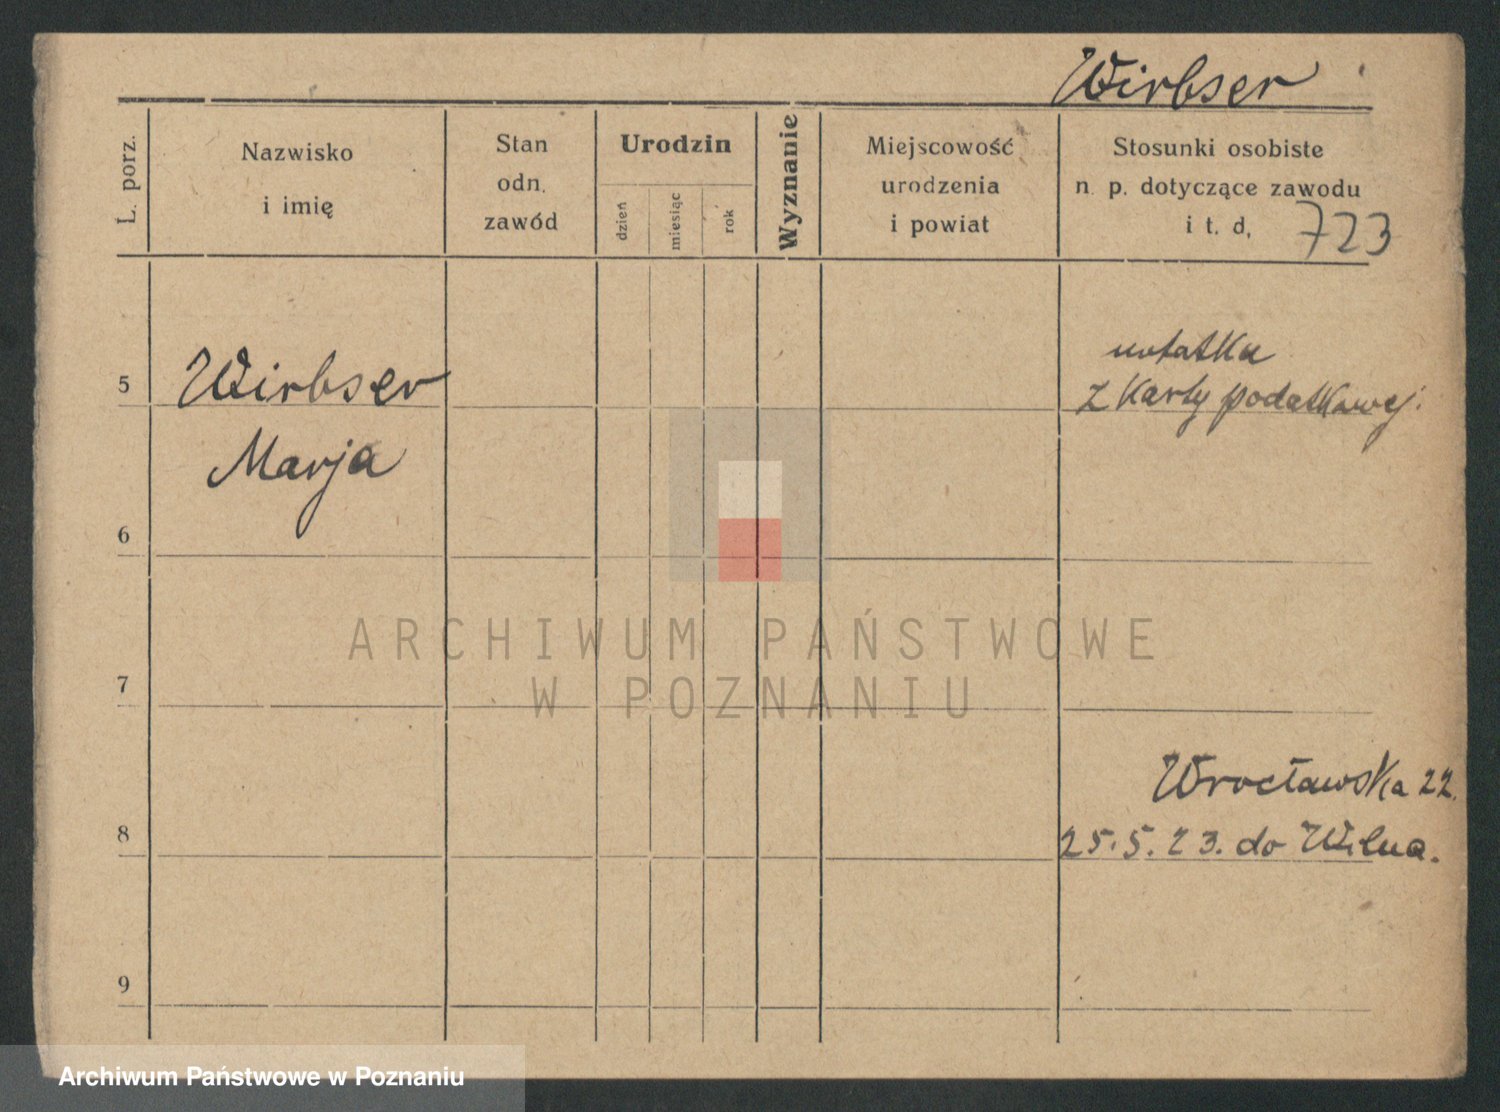 Wirbser
L. porz.
Nazwisko
i imię
Stan
odn.
zawód
Urodzin
dzień
miesiąc
rok
Wyznanie
Miejscowość
urodzenia
i powiat
Stosunki osobiste
n. p. dotyczące zawodu
i t. d,
723
5
Wirbser
Marja
notatka
z Karty podatkowej.
6
7
8
Wrocławska 22.
25.5.23. do Wilna.
9
ARCHIWUM PAŃSTWOWE
W POZNANIU
Archiwum Państwowe w Poznaniu